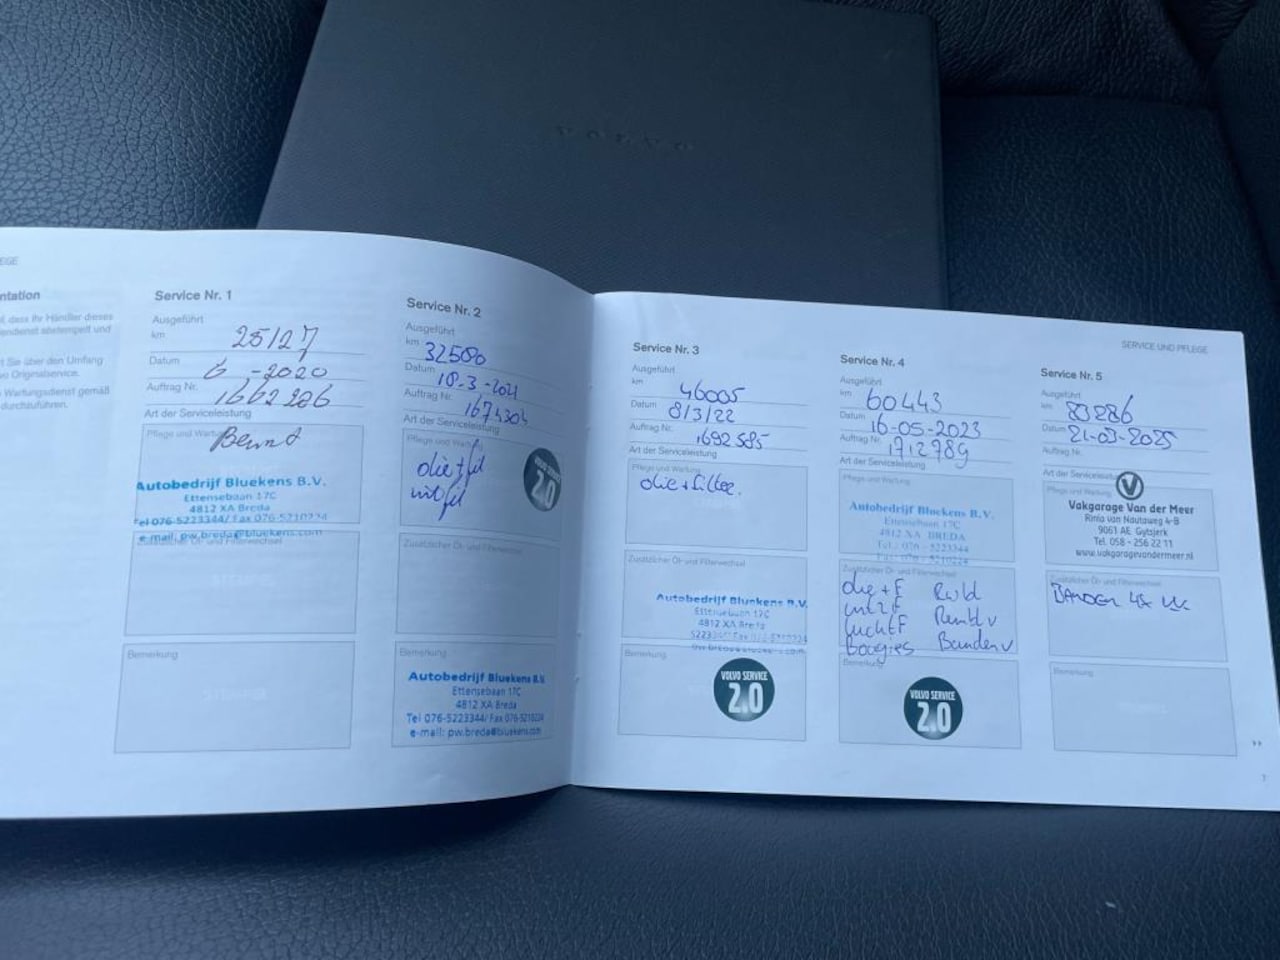 VOLVO
EGE
ntation
l, dass Ihr Händler dieses
endienst abstempelt und
t Sie über den Umfang
vo Originalservice.
Wartungsdienst gemäß
durchzuführen.
Service Nr. 1
Ausgeführt
km 25127
Datum 6 -2020
Auftrag Nr. 1662286
Art der Serviceleistung
Pflege und Wartung
Autobedrijf Bluekens B.V.
Ettensebaan 17C
4812 XA Breda
Tel 076-5223344/ Fax 076-5210224
e-mail: pw.breda@bluekens.com
Zusätzlicher Öl- und Filterwechsel
STEMPEL
Bemerkung
STEMPEL
Service Nr. 2
Ausgeführt
km 32580
Datum 18-3-2021
Auftrag Nr. 1674304
Art der Serviceleistung
Pflege und Wartung
olie + fil
int fil
VOLVO SERVICE
2.0
Zusätzlicher Öl- und Filterwechsel
Bemerkung
Autobedrijf Bluekens B.V.
Ettensebaan 17C
4812 XA Breda
Tel 076-5223344/ Fax 076-5210224
e-mail: pw.breda@bluekens.com
Service Nr. 3
Ausgeführt
km 46005
Datum 8/3/22
Auftrag Nr. 1692585
Art der Serviceleistung
Pflege und Wartung
olie + filter.
Zusätzlicher Öl- und Filterwechsel
Autobedrijf Bluekens B.V.
Ettensebaan 17C
4812 XA Breda
Bemerkung
VOLVO SERVICE
2.0
SERVICE UND PFLEGE
Service Nr. 4
Ausgeführt
km 60443
Datum 16-05-2023
Auftrag Nr. 1712789
Art der Serviceleistung
Pflege und Wartung
Autobedrijf Bluekens B.V.
Ettensebaan 17C
4812 XA BREDA
Tel.: 076 - 5223344
Fax: 076 - 5210224
Zusätzlicher Öl- und Filterwechsel
olie + F
int F
luchtF Remblv
Bougies Banden v
Bemerkung
VOLVO SERVICE
2.0
Service Nr. 5
Ausgeführt
km 83286
Datum 21-03-2025
Auftrag Nr.
Art der Serviceleistung
Pflege und Wartung
V
Vakgarage Van der Meer
Rinia van Nautaweg 4-B
9061 AE Gytsjerk
Tel. 058 - 256 22 11
www.vakgaragevandermeer.nl
Zusätzlicher Öl- und Filterwechsel
BANDEN 4x
Bemerkung
››
7